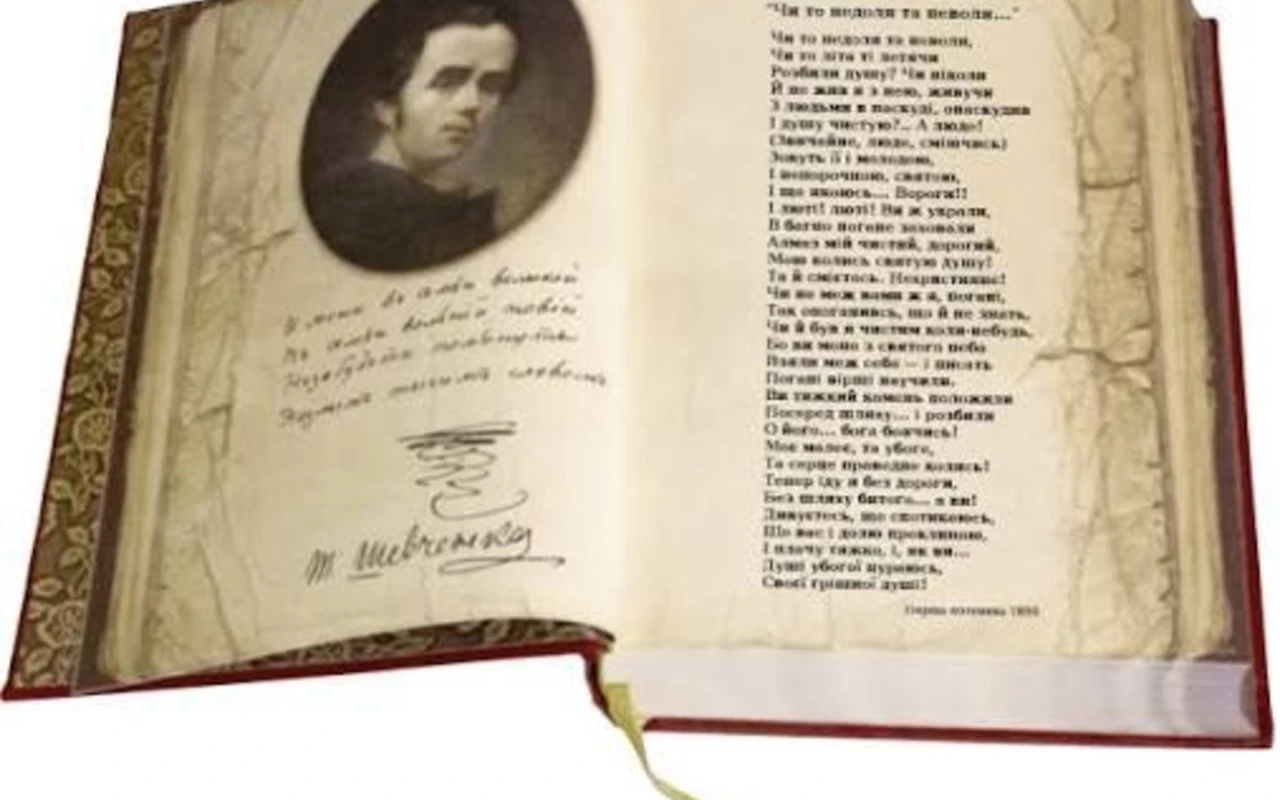 И мене въ семьи великій
Въ семьи вольній новій
Незабудьте помьянути
Незлимъ тихимъ словомъ
Т Шевченко
"Чи то недоля та неволя..."
Чи то недоля та неволя,
Чи то літа ті летячи
Розбили душу? Чи ніколи
Й не жив я з нею, живучи
З людьми в паскуді, опаскудив
І душу чистую?.. А люде!
(Звичайне, люде, сміючись)
Зовуть її і молодою,
І непорочною, святою,
І ще якоюсь... Вороги!!
І люті! люті! Ви ж украли,
В багно погане заховали
Алмаз мій чистий, дорогий,
Мою колись святую душу!
Та й смієтесь. Нехристияне!
Чи не меж вами ж я, погані,
Так опоганивсь, що й не знать,
Чи й був я чистим коли-небудь,
Бо ви мене з святого неба
Взяли меж себе — і писать
Погані вірші научили.
Ви тяжкий камень положили
Посеред шляху... і розбили
О його... бога боячись!
Моє малеє, та убоге,
Та серце праведне колись!
Тепер іду я без дороги,
Без шляху битого... а ви!
Дивуєтесь, що спотикаюсь,
Що вас і долю проклинаю,
І плачу тяжко, і, як ви...
Душі убогої цураюсь,
Своєї грішної душі!
Перша половина 1850